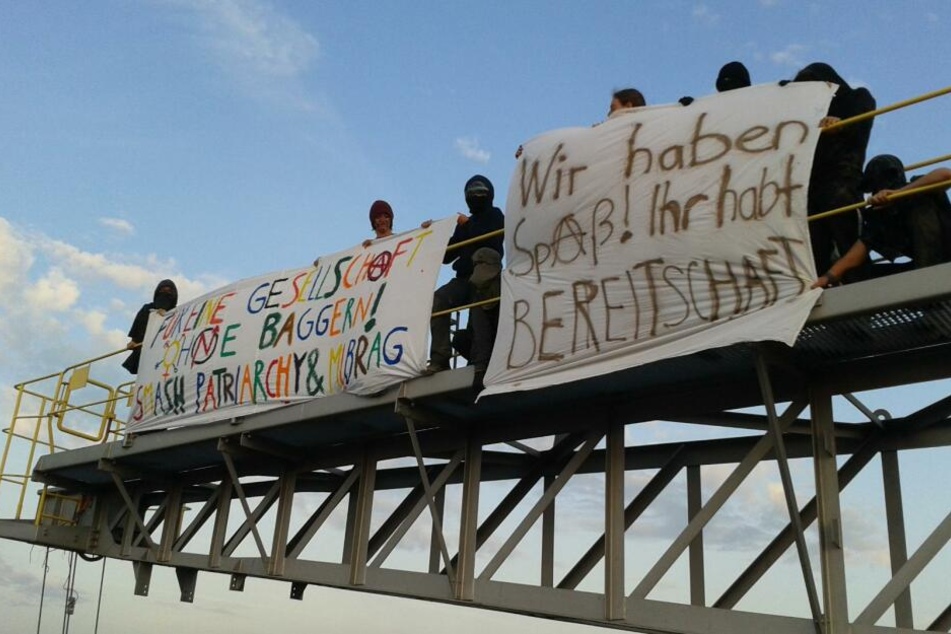 FÜR EINE GESELLSCHAFT
OHNE BAGGERN!
SMASH PATRIARCHY & MIBRAG
Wir haben
Spaß! Ihr habt
BEREITSCHAFT